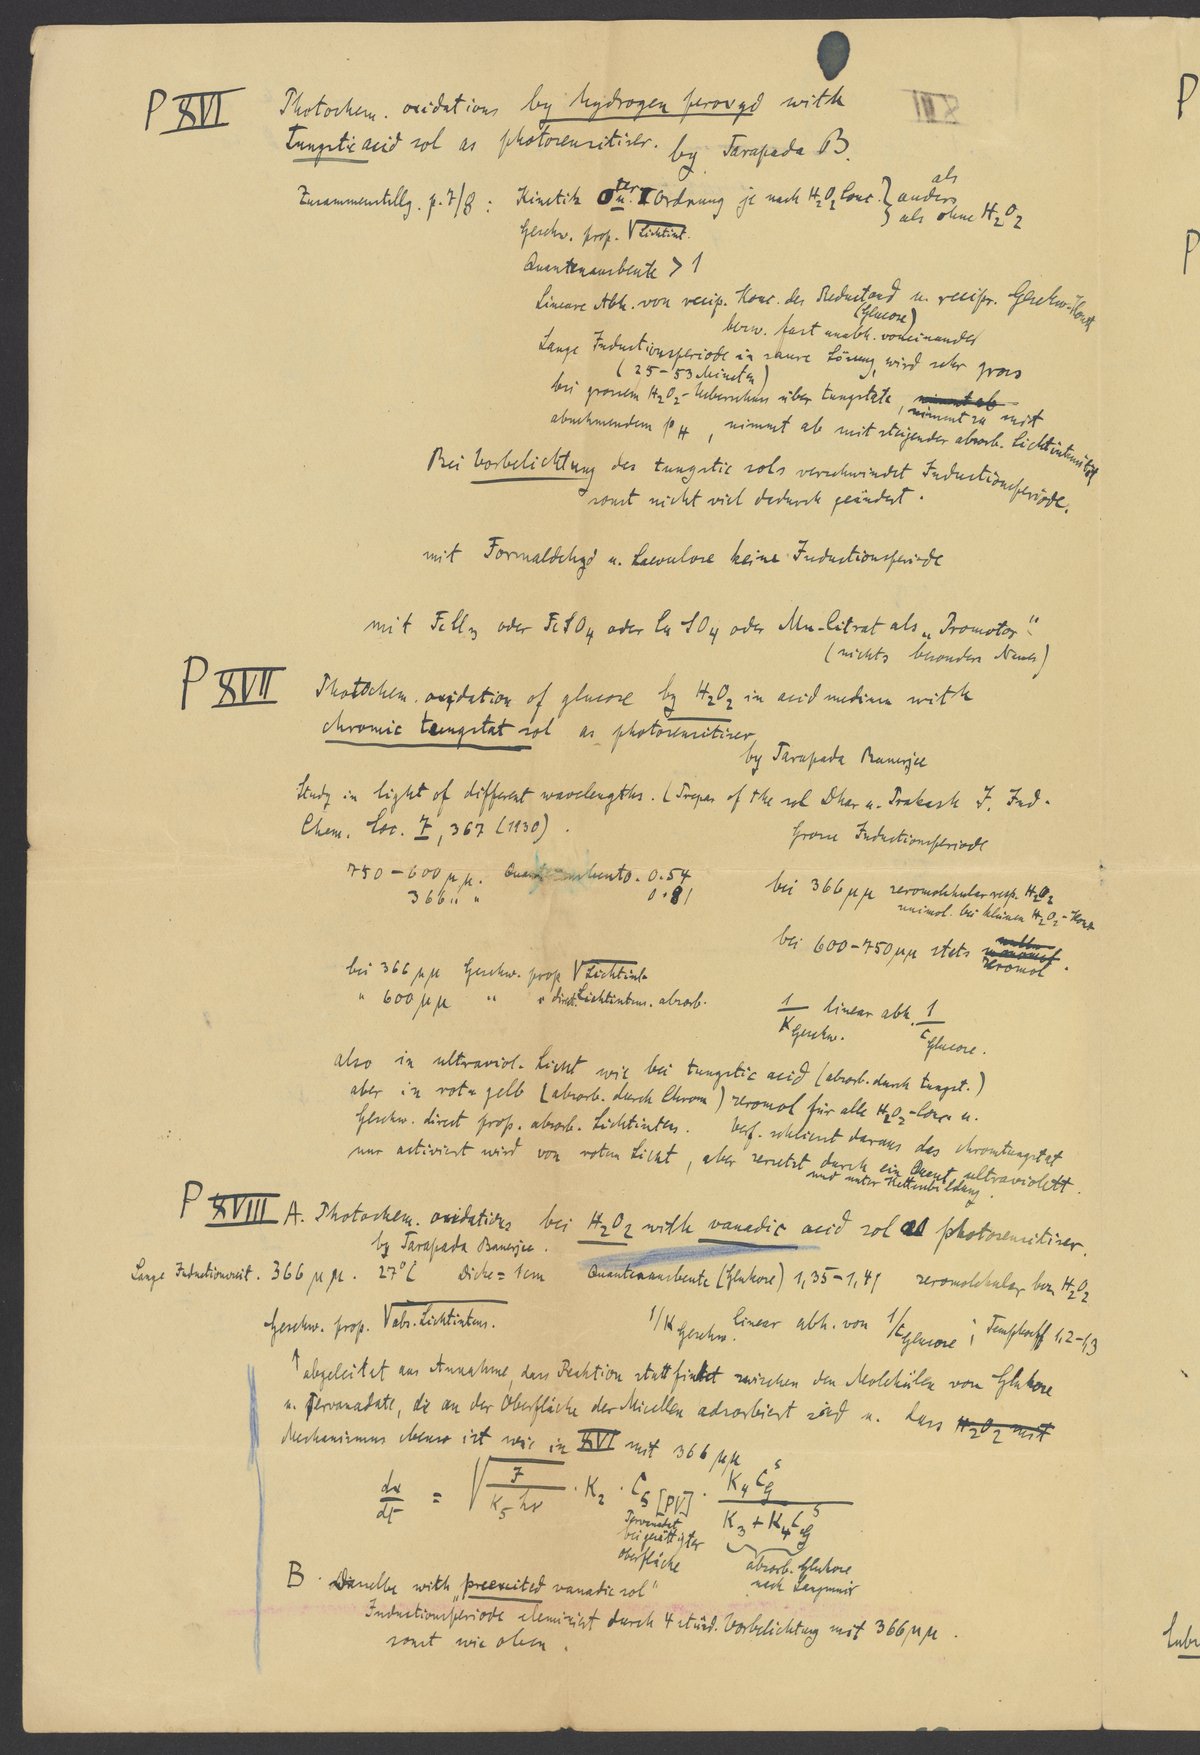 P XVI Photochem. oxidations by hydrogen peroxyd with
tungstic acid sol as photosensitiser. by Tarapada B.
XIII
Zusammenstellg. p. 7/8 : Kinetik 0ter u. I Ordnung je nach H2O2 Conc. } anders als
als ohne H2O2
Geschw. prop. √Lichtint.
Quantenausbeute > 1
Lineare Abh. von recip. Konc. des Reductand u. recipr. Geschw-Konst
(Glucose)
bezw. fast unabh. voneinander
Lange Inductionsperiode in saure Lösung, wird sehr gross
(25-53 Minuten)
bei grossem H2O2-Ueberschuss über tungstate, nimmt ab nimmt zu mit
abnehmendem pH, nimmt ab mit steigender absorb. Lichtintensität
Bei Vorbelichtung des tungstic sols verschwindet Inductionsperiode,
sonst nicht viel dadurch geändert.
mit Formaldehyd u. Laevulose keine Inductionsperiode
mit FeCl3 oder FeSO4 oder CuSO4 oder Mn-Citrat als „Promotor“
(nichts besonders Neues)
P XVII Photochem. oxidation of glucose by H2O2 in acid medium with
chromic tungstat sol as photosensitiser
by Tarapada Banerjee
Study in light of different wavelengths. (Prepar of the sol Dhar u. Prakash J. Ind.
Chem. Soc. 7, 367 (1930).
Grosse Inductionsperiode
750-600 μμ. Quantenausbeute. 0.54
366 " " 0.81
bei 366 μμ zeromolekular resp. H2O2
unimol. bei kleinen H2O2-Konz
bei 600-750 μμ stets zeromol.
bei 366 μμ Geschw. prop √Lichtint.
" 600 μμ " " direct Lichtintens. absorb.
1/K Geschw. linear abh. 1/c Glucose.
also in ultraviol. Licht wie bei tungstic acid (absorb. durch tungst.)
aber in rot u gelb (absorb. durch Chrom) zeromol für alle H2O2-Conc. u.
Geschw. direct prop. absorb. Lichtintens. Verf. schliesst daraus das chromtungstat
nur activiert wird von rotem Licht, aber zersetzt durch ein Quant ultraviolett.
und unter Kettenbildung.
P XVIII A. Photochem. oxidations bei H2O2 with vanadic acid sol as photosensitiser.
by Tarapada Banerjee.
Lange Inductionszeit. 366 μμ. 27°C Dicke = 1cm Quantenausbeute (Glukose) 1,35-1,41 zeromolekular bez. H2O2
Geschw. prop. √abs. Lichtintens. 1/K Geschw. linear abh. von 1/c Glucose ; Tempkoeff 1,2-1,3
↑ abgeleitet aus Annahme, dass Reaktion stattfindet zwischen den Molekülen von Glukose
u. Pervanadate, die an der Oberfläche der Micellen adsorbiert sind u. dass H2O2 mit
Mechanismus ebenso ist wie in XVI mit 366 μμ
dx/dt = √(J/K5 hν) · K2 · CS[PV] · K4 C G S / K3 + K4 C G S
Pervanadat
bei gesättigter
Oberfläche
absorb. Glukose
nach Langmuir
B. Dasselbe with „preexcited vanadic sol“
Inductionsperiode eleminiert durch 4 stünd. Vorbelichtung mit 366 μμ.
sonst wie oben.
P
P